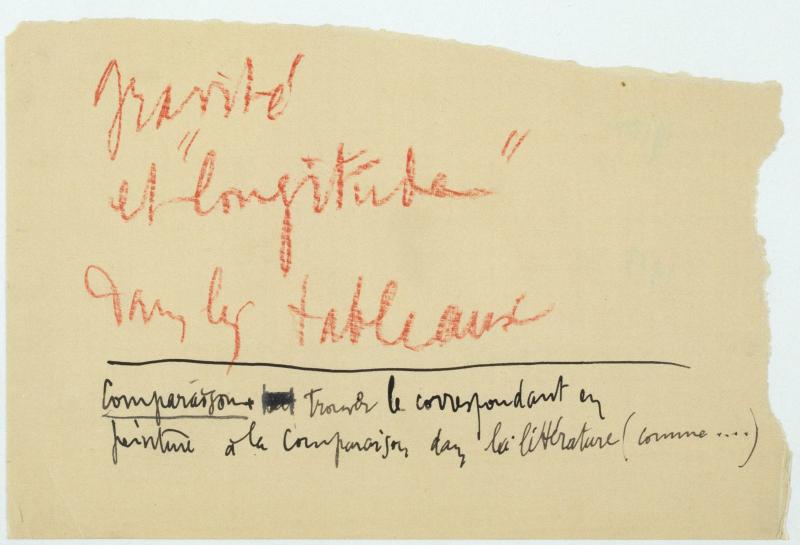 gravité
et "longitude"
dans les tableaux
Comparaison + trouver le correspondant en
peinture à la comparaison dans la littérature (comme ....)